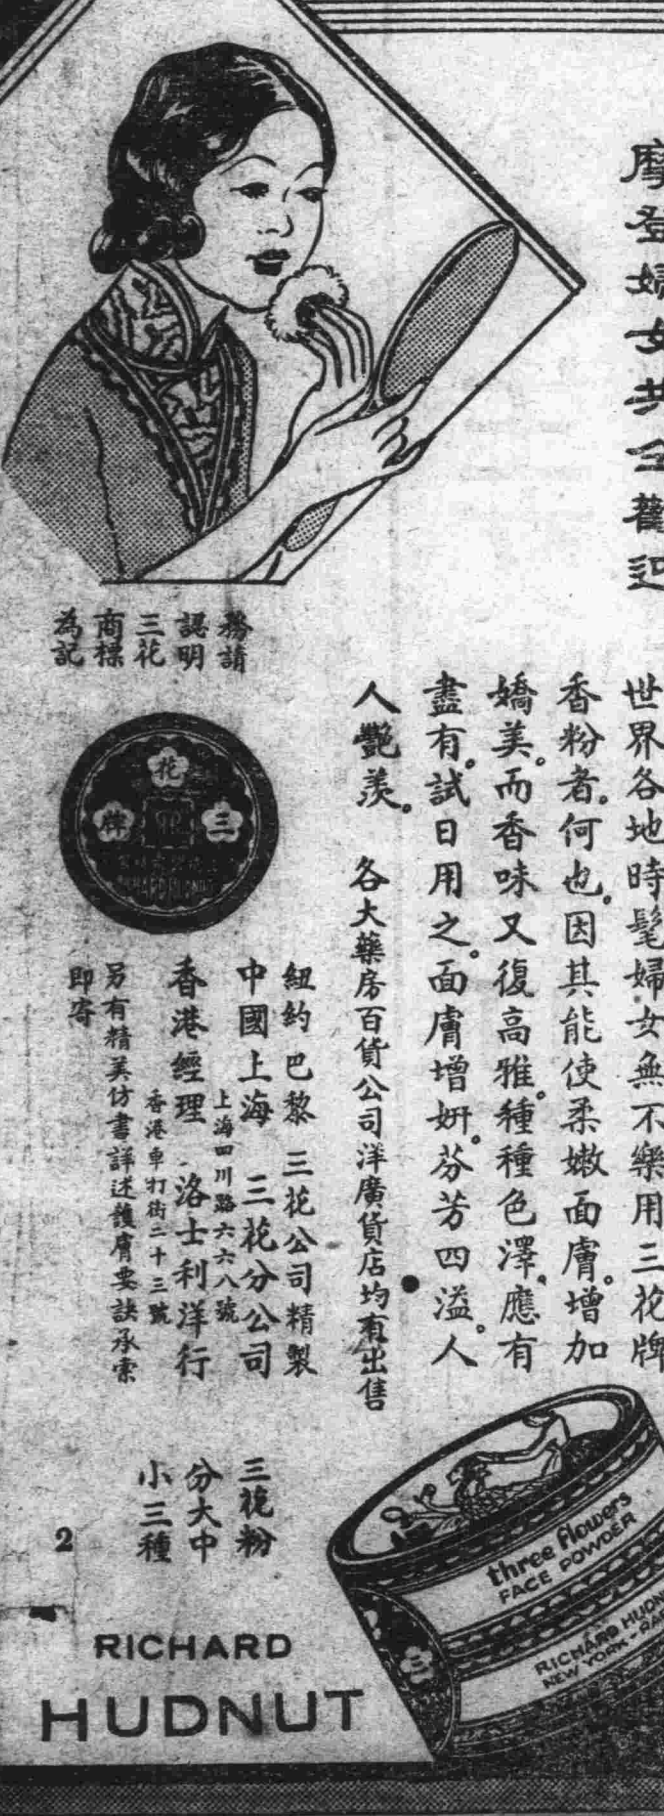 摩登婦女共
世界各地時髦婦女無不樂用三花牌
香粉者。何也。因其能使柔嫩面膚。增加
嬌美。而香味又復高雅。種種色澤、應有
盡有。試日用之。面膚增妍。芬芳四溢。人
人艷羨。
各大藥房百貨公司洋廣貨店均有出售
務請
認明
三花
商標
為記
花
三
牌
RICHARD HUDNUT
紐約巴黎 三花公司精製
中國上海 三花分公司
上海四川路六六八號
香港經理 洛士利洋行
香港車打街二十三號
另有精美仿書詳述護膚要訣承索
即寄
三花粉
分大中
小三種
2
three flowers
FACE POWDER
RICHARD HUDN
NEW YORK - PA
三
RICHARD
HUDNUT